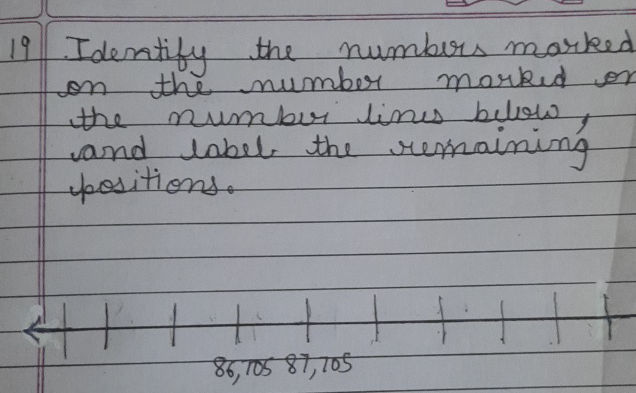 19 Identify the numbers marked
on the number marked on
the number lines below,
and label the remaining
positions.
86,705 87,705